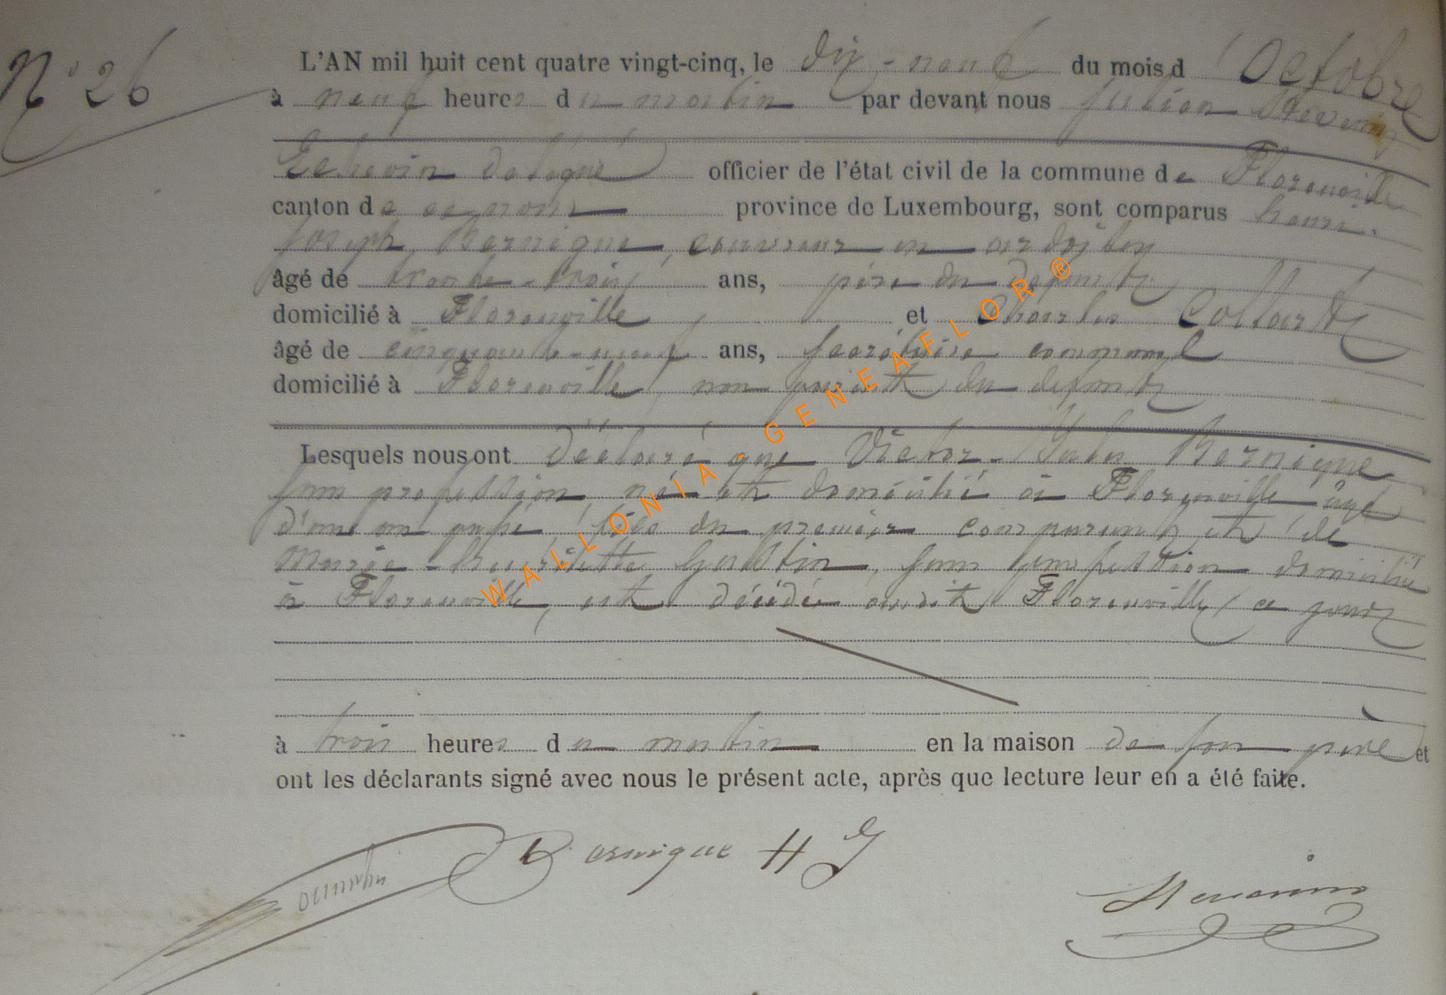 N° 26
L'AN mil huit cent quatre vingt-cinq, le dix-neuf du mois d'Octobre
à neuf heures du matin par devant nous Julien
Echevin délégué officier de l'état civil de la commune de Florenville
canton de ce nom province de Luxembourg, sont comparus Henri-
Joseph Bernique, couvreur en ardoises
âgé de trente-trois ans, père du défunt
domicilié à Florenville et Charles Collart
âgé de cinquante-neuf ans, secrétaire communal
domicilié à Florenville, non parent du défunt
Lesquels nous ont déclaré que Victor-Jules Bernique
sans profession, né et domicilié à Florenville âgé
d'un an, fils du premier comparant et de
Marie-Henriette, sans profession domiciliée
à Florenville, est décédé audit Florenville ce jour
à trois heures du matin en la maison de son père et
ont les déclarants signé avec nous le présent acte, après que lecture leur en a été faite.
Bernique H J
WALLONIA GENEAFLOR ®